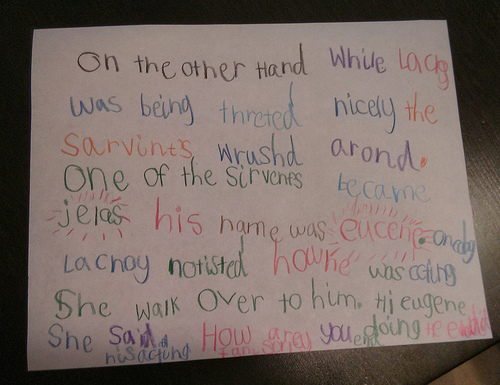 On the other Hand While Lacny
was being threted nicely the
Sarvints wrushd arond.
One of the sirvenes became
jelas his name was eucene.
Lachoy notisted howke was acting
She walk Over to him. Hi eugene
She Said How are you doing
his acting I am sorrey end